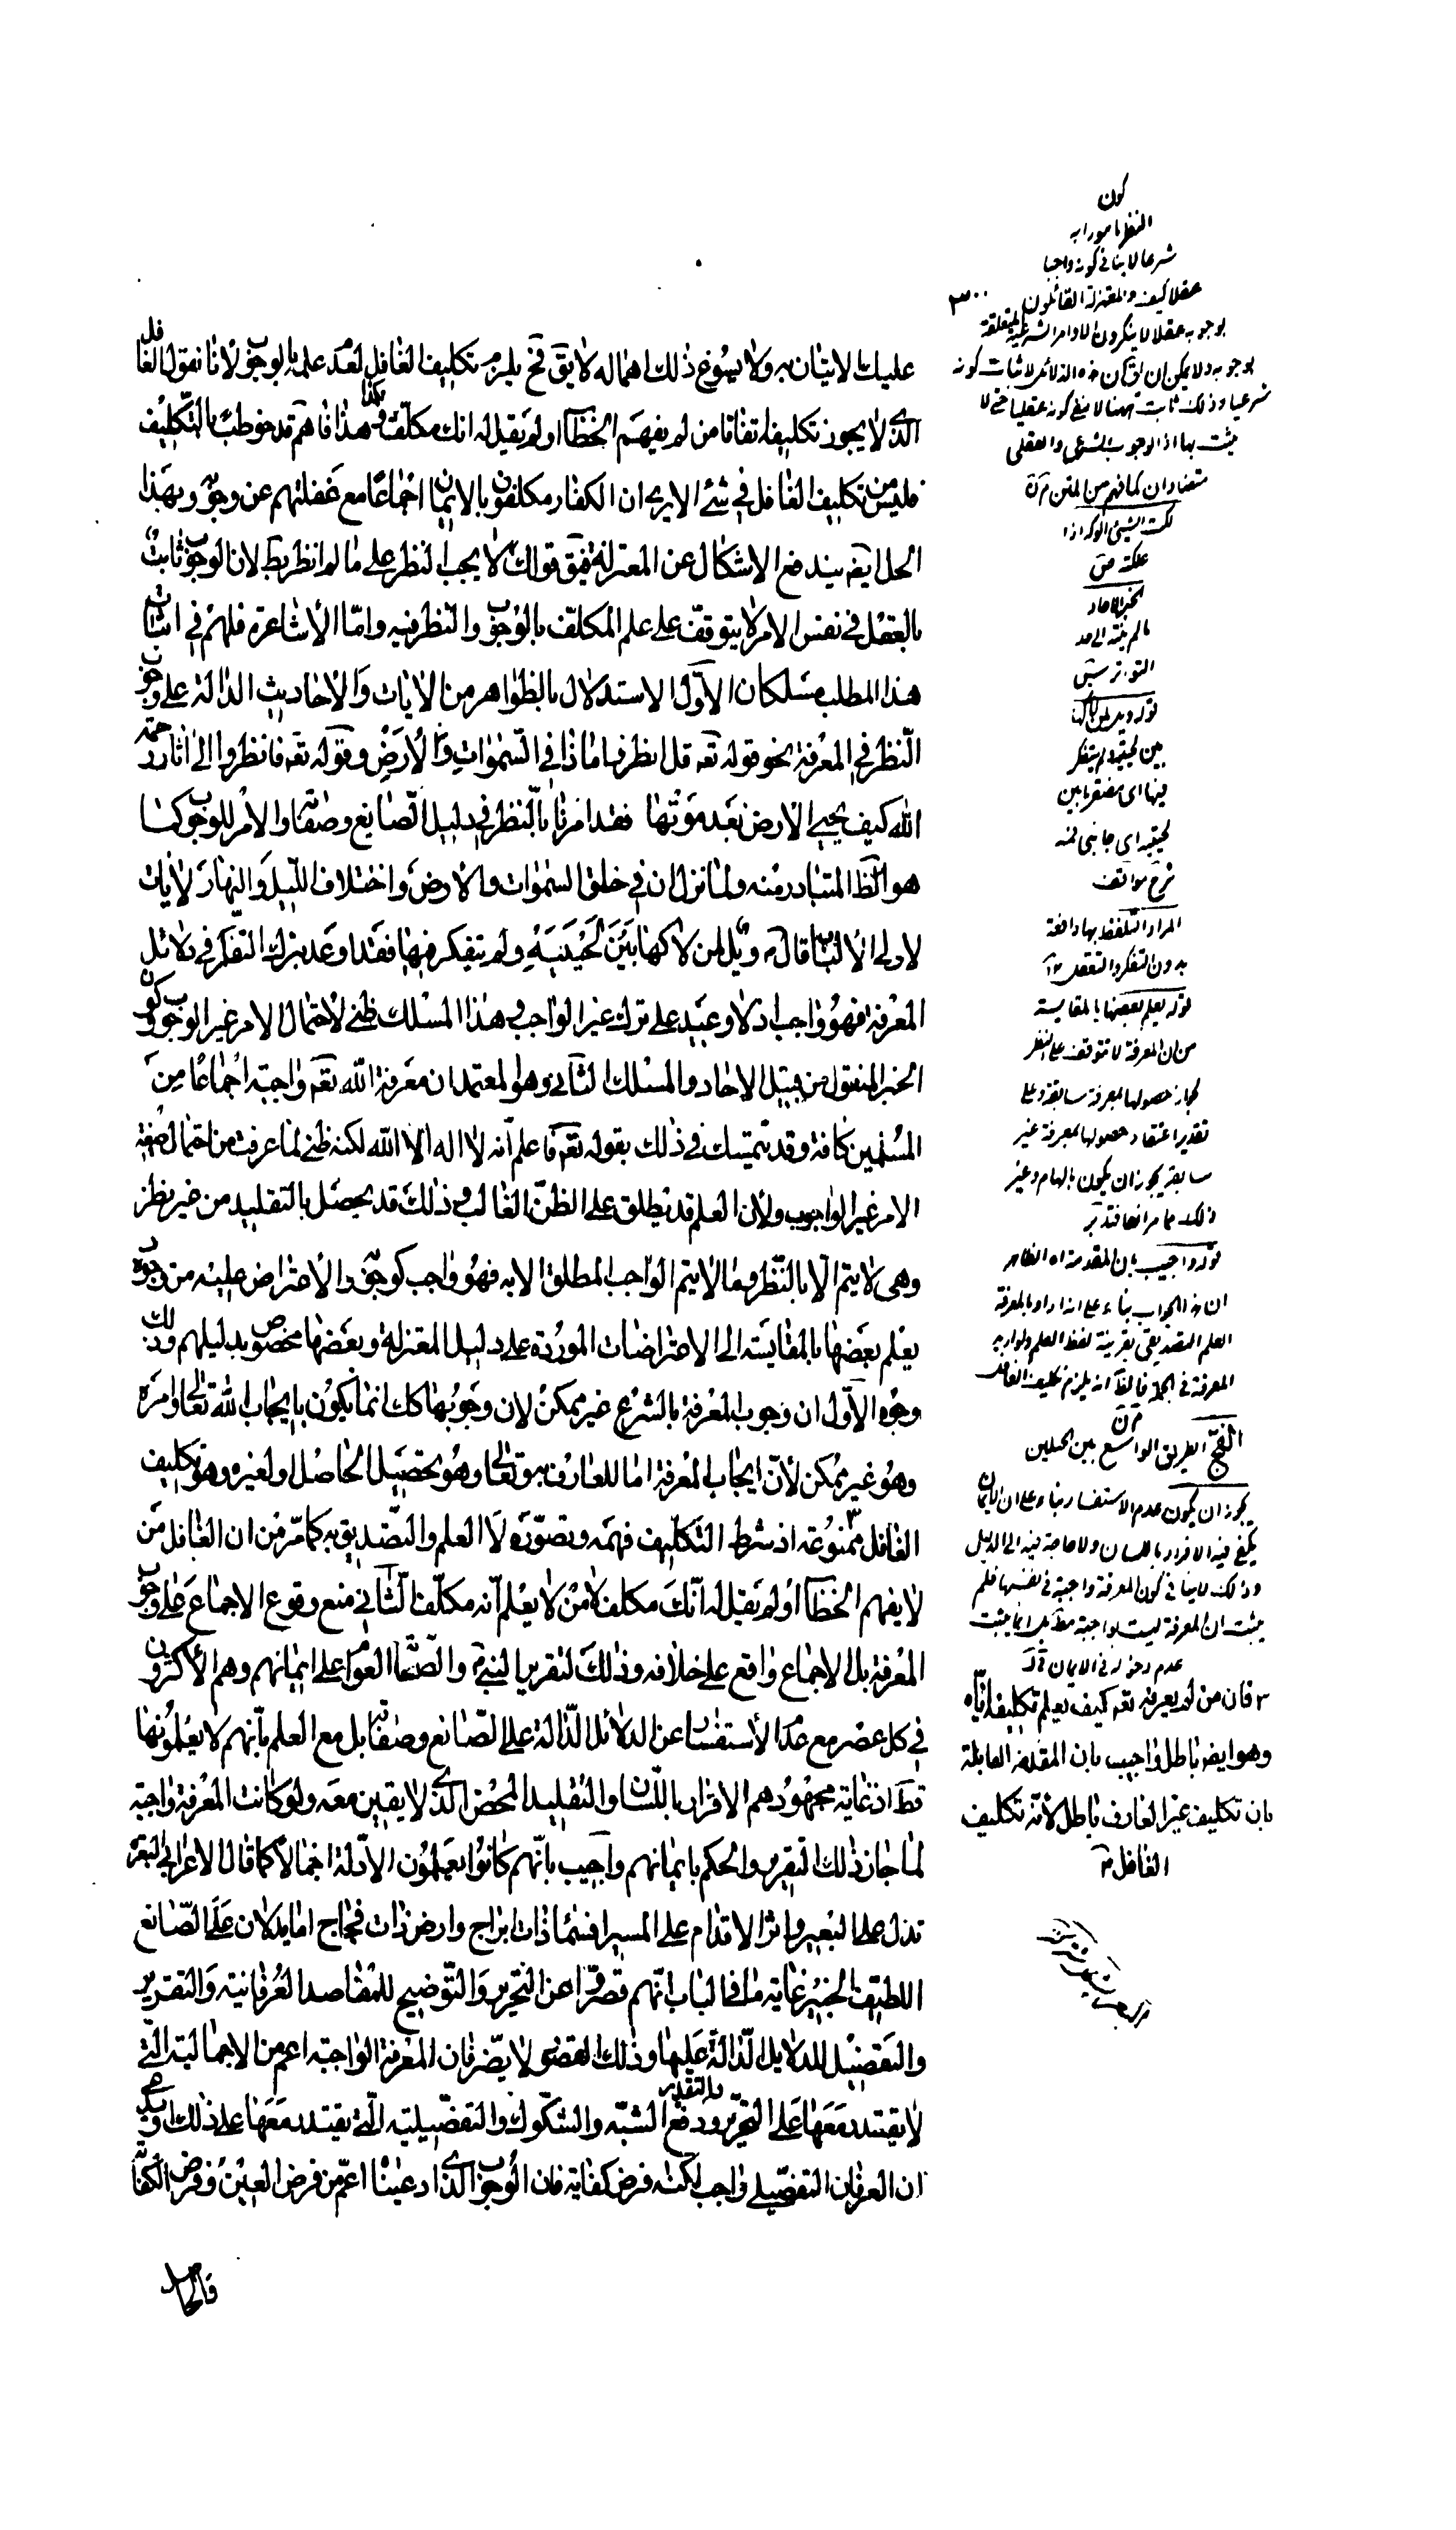 عليك الاتيان به ولا يسوغ ذلك اهماله لا يق فح يلزم تكليف الغافل لعدم علمه بالوجوب لانا نقول الغافل
الذي لا يجوز تكليفه اتفاقا من لم يفهم الخطاب او لم يقل له انك مكلف بكذا هذا فاهم قد خوطب بالتكليف
فليس من تكليف الغافل في شئ الا يرى ان الكفار مكلفون بالايمان اجماعا مع غفلتهم عن وجوبه وبهذا
الحل ايضه يندفع الاشكال عن المعتزلة فيق قولك لا يجب النظر على ما لم انظر بط لان الوجوب ثابت
بالعقل في نفس الامر لا يتوقف على علم المكلف بالوجوب والنظر فيه واما الاشاعرة فلهم في اثبات
هذا المطلب مسلكان الاول الاستدلال بالظواهر من الايات والاحاديث الدالة على وجوب
النظر في المعرفة نحو قوله تعه قل انظروا ماذا في السموات والارض وقوله تعه فانظروا الى اثار رحمة
الله كيف يحيي الارض بعد موتها فقد امرنا بالنظر في دليل الصانع وصفاته والامر للوجوب كما
هو الظ المتبادر منه ولما نزل ان في خلق السموات والارض واختلاف الليل والنهار لايات
لاولى الالباب قال ويل لمن لاكها بين لحييه ولم يتفكر فيها فقد اوعد بترك التفكر في دلائل
المعرفة فهو واجب اذ لا وعيد على ترك غير الواجب وهذا المسلك ظني لاحتمال الامر غير الوجوب وكون
الخبر المنقول من قبيل الاحاد والمسلك الثاني وهو المعتمد ان معرفة الله تعه واجبة اجماعا من
المسلمين كافة وقد يتمسك في ذلك بقوله تعه فاعلم انه لا اله الا الله لكنه ظني لما عرفت من احتمال صيغة
الامر غير الوجوب ولان العلم قد يطلق على الظن الغالب وذلك قد يحصل بالتقليد من غير نظر
وهي لا يتم الا بالنظر وما لا يتم الواجب المطلق الا به فهو واجب كوجوبه والاعتراض عليه من وجوه
يعلم بعضها بالمقايسة الى الاعتراضات الموردة على دليل المعتزلة وبعضها مخصوص بدليلهم وذلك
وجوه الاول ان وجوب المعرفة بالشرع غير ممكن لان وجوبها كك انما يكون بايجاب الله تعالى وامره
وهو غير ممكن لان ايجاب المعرفة اما للعارف به تعالى وهو تحصيل الحاصل او لغيره وهو تكليف
الغافل ممنوعة اذ شرط التكليف فهمه وتصوره لا العلم والتصديق به كما مر من ان الغافل من
لا يفهم الخطاب او لم يقل له انك مكلف لا من لا يعلم انه مكلف الثاني منع وقوع الاجماع على وجوب
المعرفة بل الاجماع واقع على خلافه وذلك لتقرير النبي والصحابة العوام على ايمانهم وهم الاكثرون
في كل عصر مع عدم الاستفسار عن الدلائل الدالة على الصانع وصفاته بل مع العلم بانهم لا يعلمونها
قط اذ غاية مجهودهم الاقرار باللسان والتقليد المحض الذي لا يقين معه ولو كانت المعرفة واجبة
لما جاز ذلك التقرير والحكم بايمانهم واجيب بانهم كانوا يعلمون الادلة اجمالا كما قال الاعرابي البعرة
تدل على البعير واثر الاقدام على المسير افسماء ذات ابراج وارض ذات فجاج اما يدلان على الصانع
اللطيف الخبير غاية ما في الباب انهم قصروا عن التحرير والتوضيح للمقاصد العرفانية والتقرير
والتفصيل للدلايل الدالة عليها وذلك القصور لا يضر فان المعرفة الواجبة اعم من الاجمالية التي
لا يقتدر معها على التحرير والتقرير ودفع الشبه والشكوك والتفصيلية التي يقتدر معها على ذلك
ان العرفان التفصيلي واجب لكنه فرض كفاية فان الوجوب الذي ادعينا اعم من فرض العين وفرض الكفاية
فالحاصل
كون
النظر مامورا به
شرعا لا ينافي كونه واجبا
عقلا كيف والمعتزلة القائلون
بوجوبه عقلا لا ينكرون الاوامر الشرعية المتعلقة
بوجوبه ولا يمكن ان يكون هذه الدلائل لاثبات كونه
شرعيا وذلك ثابت ههنا لا ينفي كونه عقليا حتى لا
يثبت بها اذ الوجوب الشرعي والعقلي
متضادان كما فهم من المتن
لكت الشئ الوكه اذا
علكته ص
الخبر الاحاد
ما لم ينته الى حد
التواتر
قوله ويل لمن لاكها
بين لحييه ولم يتفكر
فيها اى مضغها بين
لحييه اى جانبى فمه
شرح مواقف
المراد التلفظ بها دافعة
بدون التفكر والتعقل
قوله يعلم بعضها بالمقايسة
من ان المعرفة لا تتوقف على النظر
لجواز حصولها بمعرفة سابقة وعلى
تقدير اعتقاد حصولها بمعرفة غير
سابقة يجوز ان يكون بالهام وغير
ذلك مما مر انفا فتدبر
قوله واجيب بان المقدمة اه الظاهر
ان هذا الجواب بناء على انه اراد بالمعرفة
العلم التصديقى بقرينة لفظ العلم ولو اريد به
المعرفة في الجملة فالظ انه يلزم تكليف الغافل
الفج الطريق الواسع بين الجبلين
يجوز ان يكون عدم الاستفسار بناء على ان الايمان
يكفي فيه الاقرار باللسان ولا حاجة فيه الى الدليل
وذلك لا ينافي كون المعرفة واجبة في نفسها فلم
يثبت ان المعرفة ليست بواجبة مط بل انما يثبت
عدم دخوله في الايمان
فان من لم يعرفه تعه كيف يعلم تكليفه اياه
وهو ايضه باطل واجيب بان المقدمة القايلة
بان تكليف غير العارف باطل لانه تكليف
الغافل